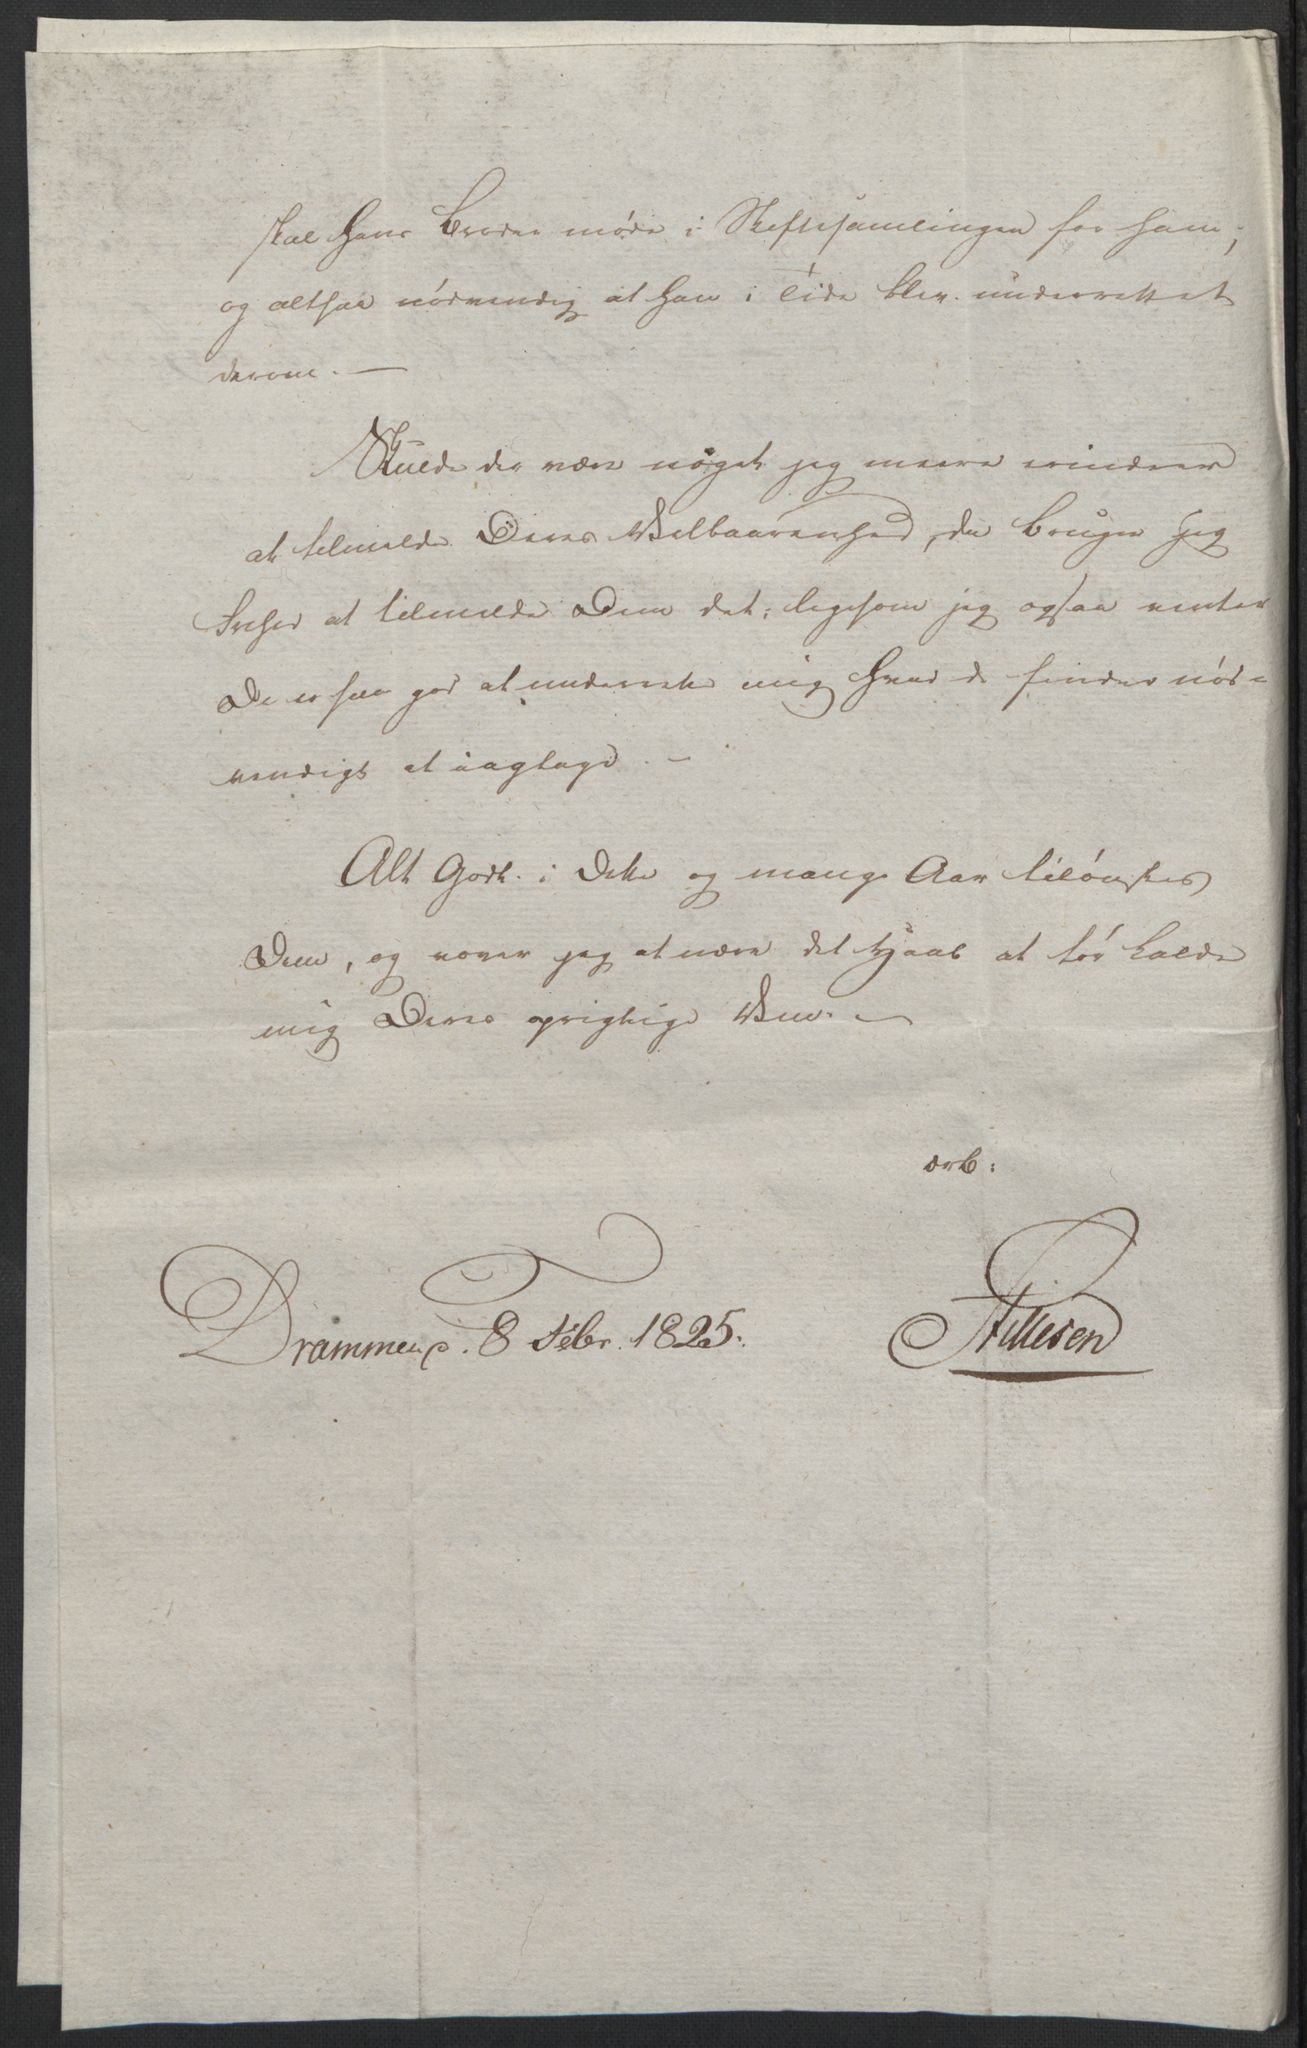 skal hans Broder møde i Skiftesamlingen for ham;
og altsaa nødvendig at han i Tide blev underrettet
derom. —
Skulde der være noget jeg meere erindrer
at tilmelde Deres Velbaarenhed, da bruger jeg
Frihed at tilmelde Dem det; ligesom jeg ogsaa venter
De er saa god at underrette mig hvad De finder nød-
vendigt at iagtage. –
Alt Godt i dette og mange Aar tilønskes
Dem, og vover jeg at være det Haab at tør kalde
mig Deres oprigtige Ven. –
ærb:
Drammen d. 8 Febr. 1825.
Tillesen